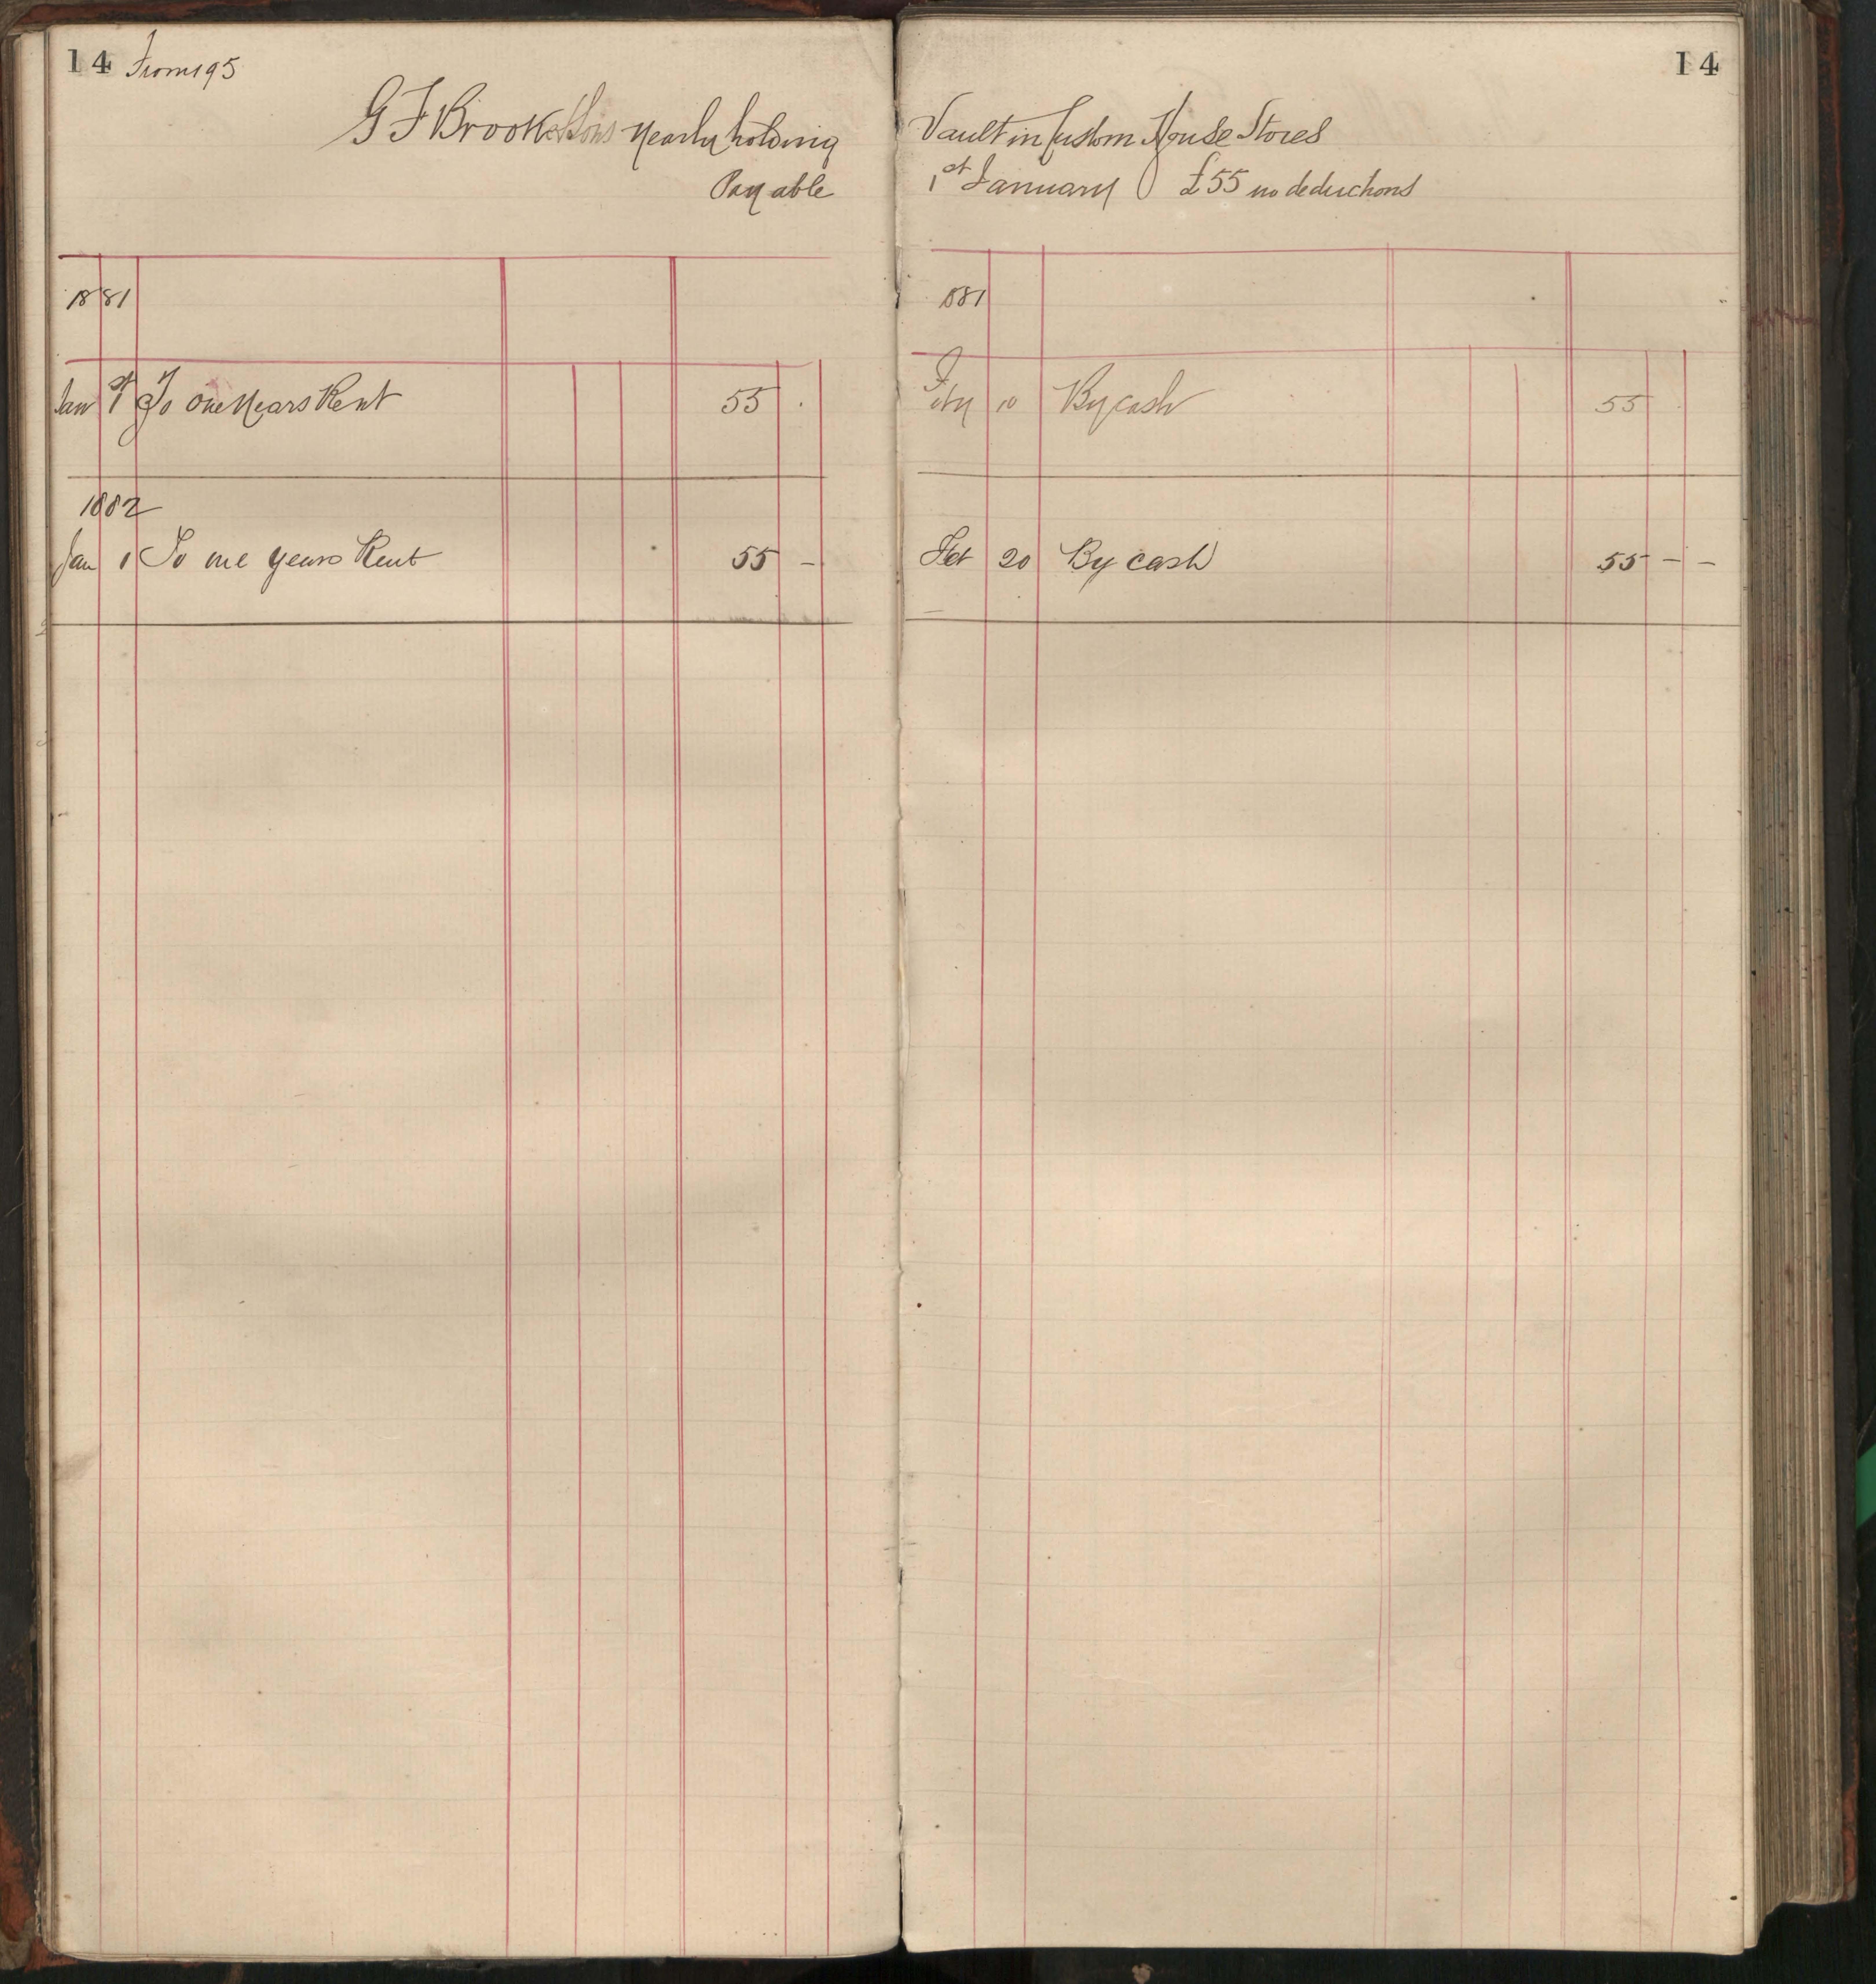 14 From 195
G F Brooke & Sons Yearly holding
Payable
1881
Jan 1st To One Years Rent 55 .
1882
Jan 1 To one years Rent 55 -
14
Vault in Custom House Stores
1st January £55 no deductions
1881
10 By cash 55
Feb 20 By cash 55 - -